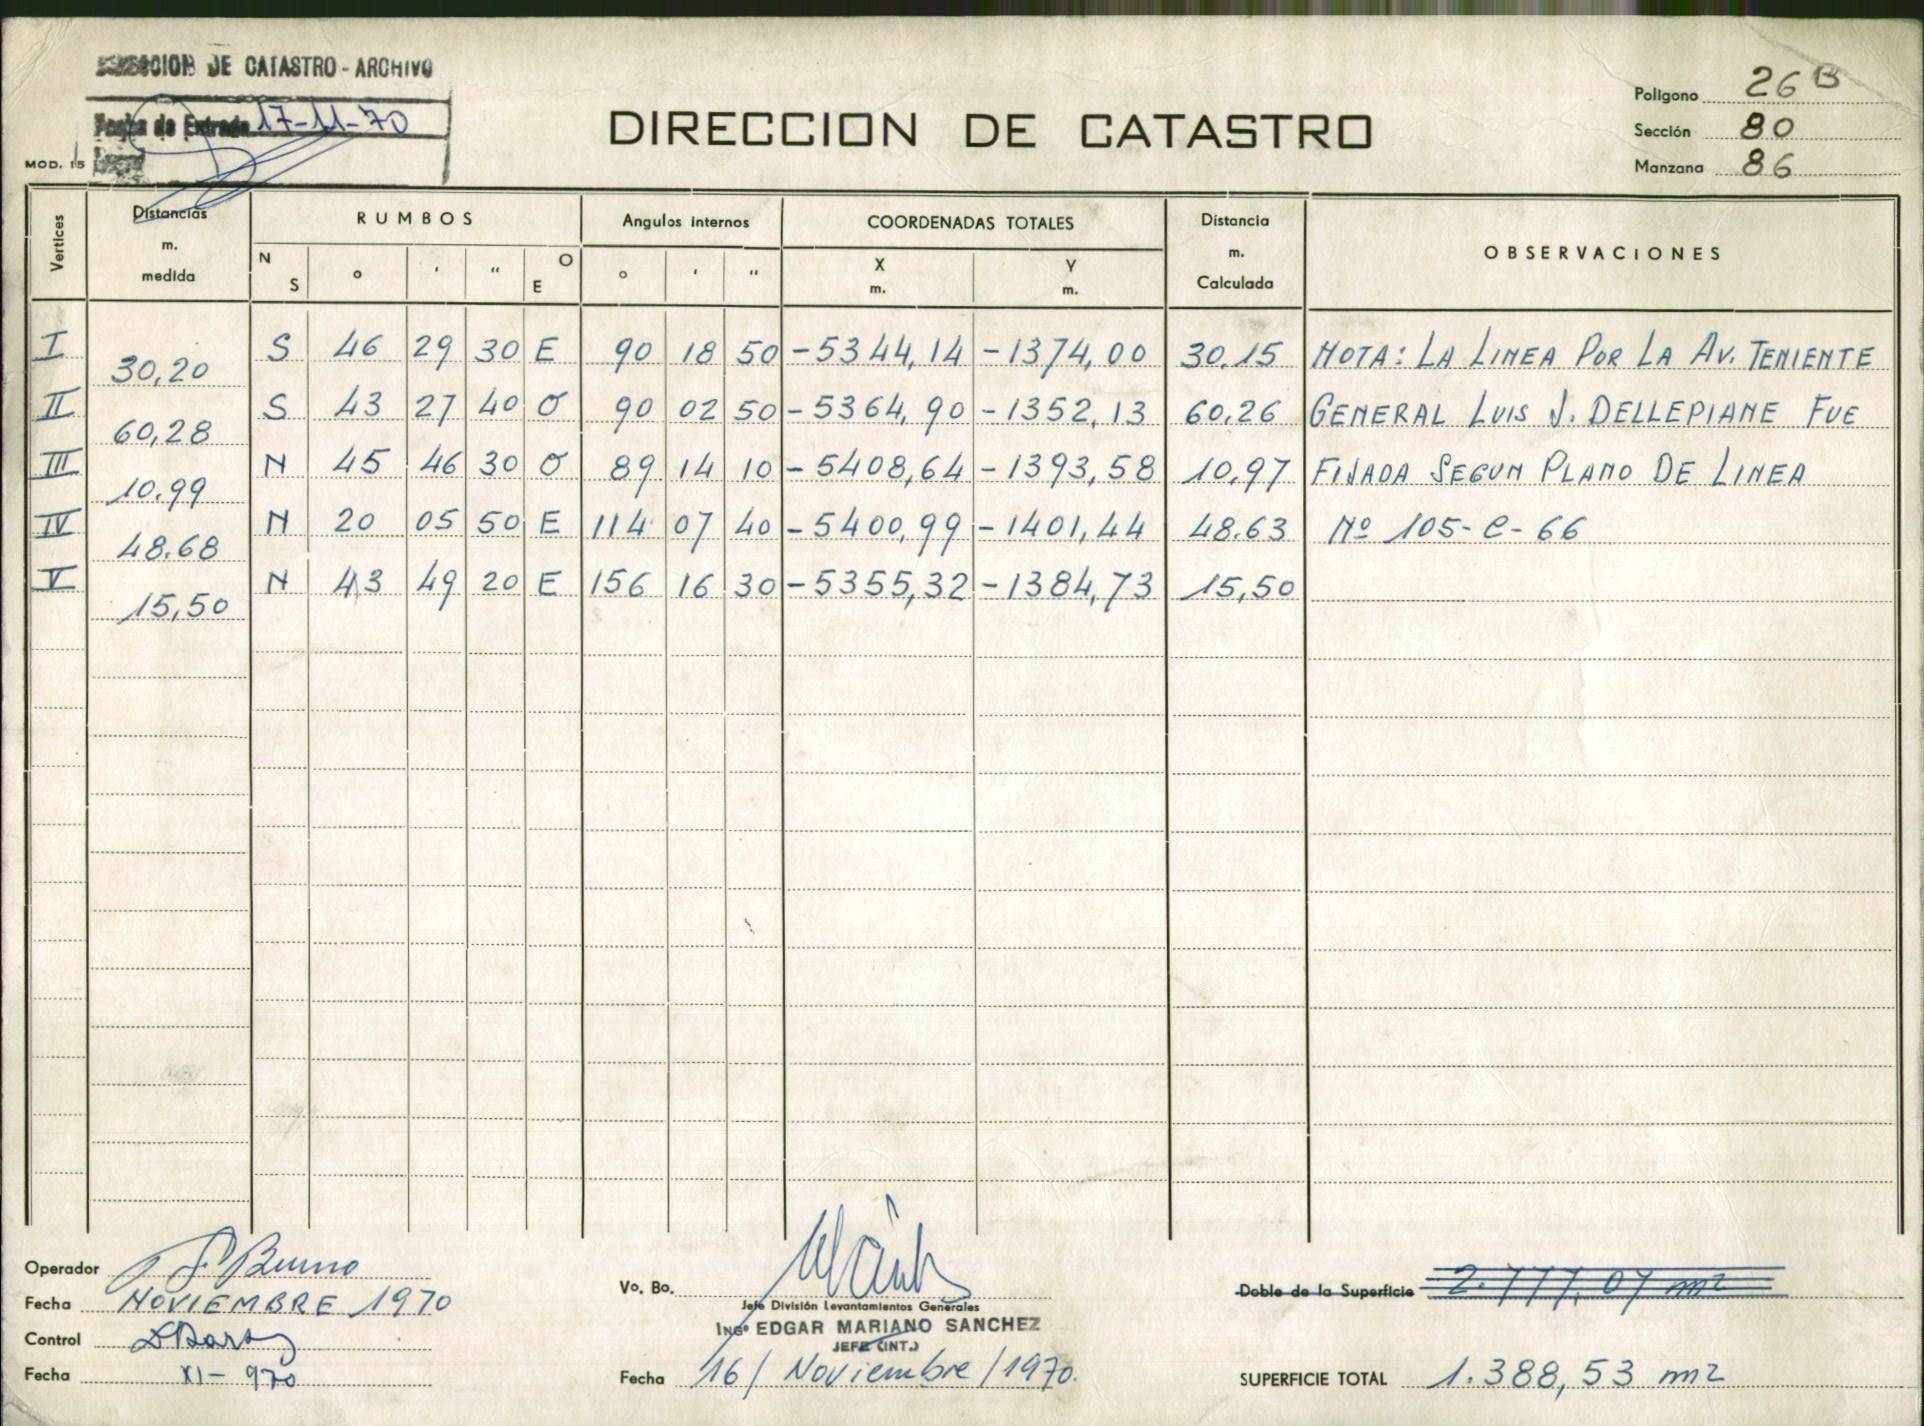 DIRECCION DE CATASTRO - ARCHIVO
Fecha de Entrada 17-11-70
MOD. 15
DIRECCION DE CATASTRO
Poligono 26 B
Sección 80
Manzana 86
Vertices
Distancias m. medida
RUMBOS
N S ° ' " O E
Angulos internos
° ' "
COORDENADAS TOTALES
X m. Y m.
Distancia m. Calculada
OBSERVACIONES
I 30,20 S 46 29 30 E 90 18 50 -5344,14 -1374,00 30.15 NOTA: LA LINEA POR LA AV. TENIENTE
II 60,28 S 43 27 40 O 90 02 50 -5364,90 -1352,13 60,26 GENERAL LUIS J. DELLEPIANE FUE
III 10.99 N 45 46 30 O 89 14 10 -5408,64 -1393,58 10,97 FIJADA SEGUN PLANO DE LINEA
IV 48.68 N 20 05 50 E 114 07 40 -5400,99 -1401,44 48.63 Nº 105-C-66
V 15,50 N 43 49 20 E 156 16 30 -5355,32 -1384,73 15,50
Operador Bruno
Fecha NOVIEMBRE 1970
Control
Fecha XI-970
Vo. Bo.
Jefe División Levantamientos Generales
ING° EDGAR MARIANO SANCHEZ
JEFE (INT.)
Fecha 16/Noviembre/1970.
Doble de la Superficie 2.777,07 m2
SUPERFICIE TOTAL 1.388,53 m2